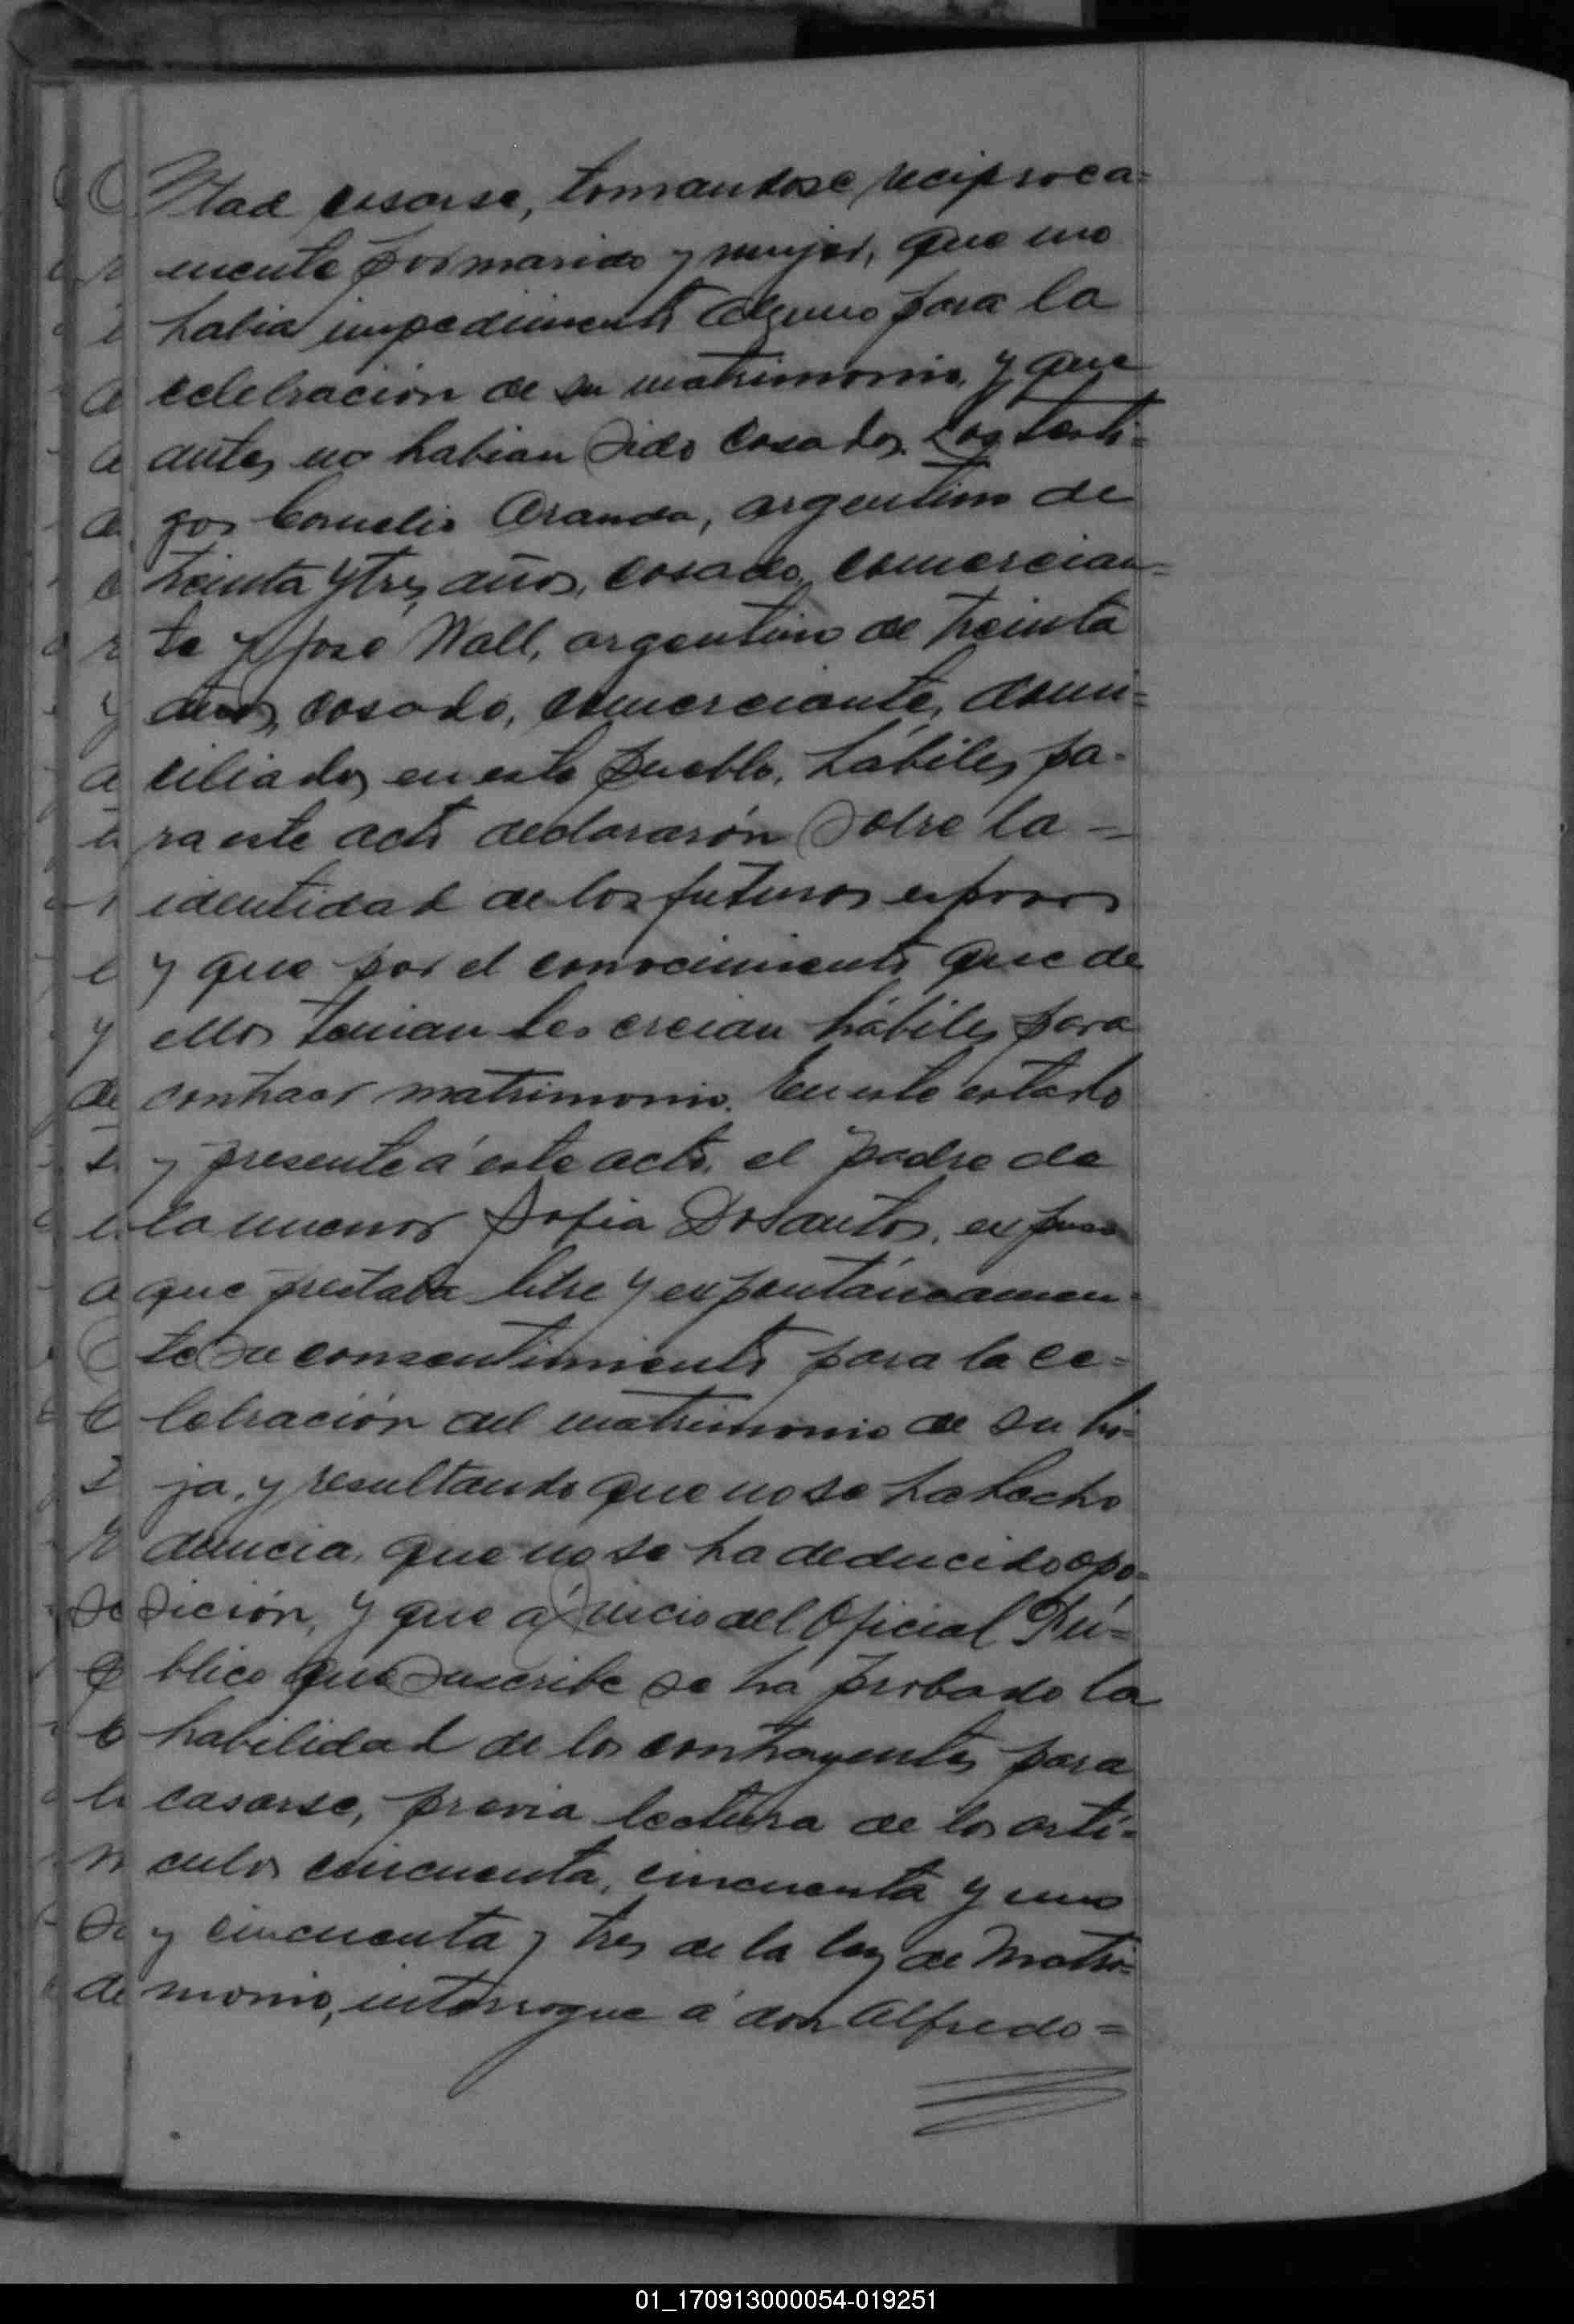 tad casarse, tomandose reciproca=
mente por marido y mujer, que no
habia impedimento alguno para la
celebracion de su matrimonio, y que
antes no habian sido casados. Los testi=
gos Cornelio Aranda, argentino de
treinta y tres años, casado, comercian=
te y José Wall, argentino de treinta
años, casado, comerciante, domi=
ciliados en este pueblo, hábiles pa=
ra este acto declararón sobre la =
identidad de los futuros esposos
y que por el conocimiento que de
ellos tenian los creian hábiles para
contraer matrimonio. En este estado
y presente á este acto, el padre de
la menor Sofia Dosantos, expuso
que prestaba libre y expontáneamen=
te su consentimiento para la ce=
lebración del matrimonio de su hi=
ja, y resultando que no se ha hecho
denuncia, que no se ha deducido opo=
sición, y que a juicio del Oficial Pú=
blico que suscribe se ha probado la
habilidad de los contrayentes para
casarse, previa lectura de los artí=
culos cincuenta, cincuenta y uno
y cincuenta y tres de la ley de Matri=
monio, interrogue á don Alfredo =
01_170913000054-019251